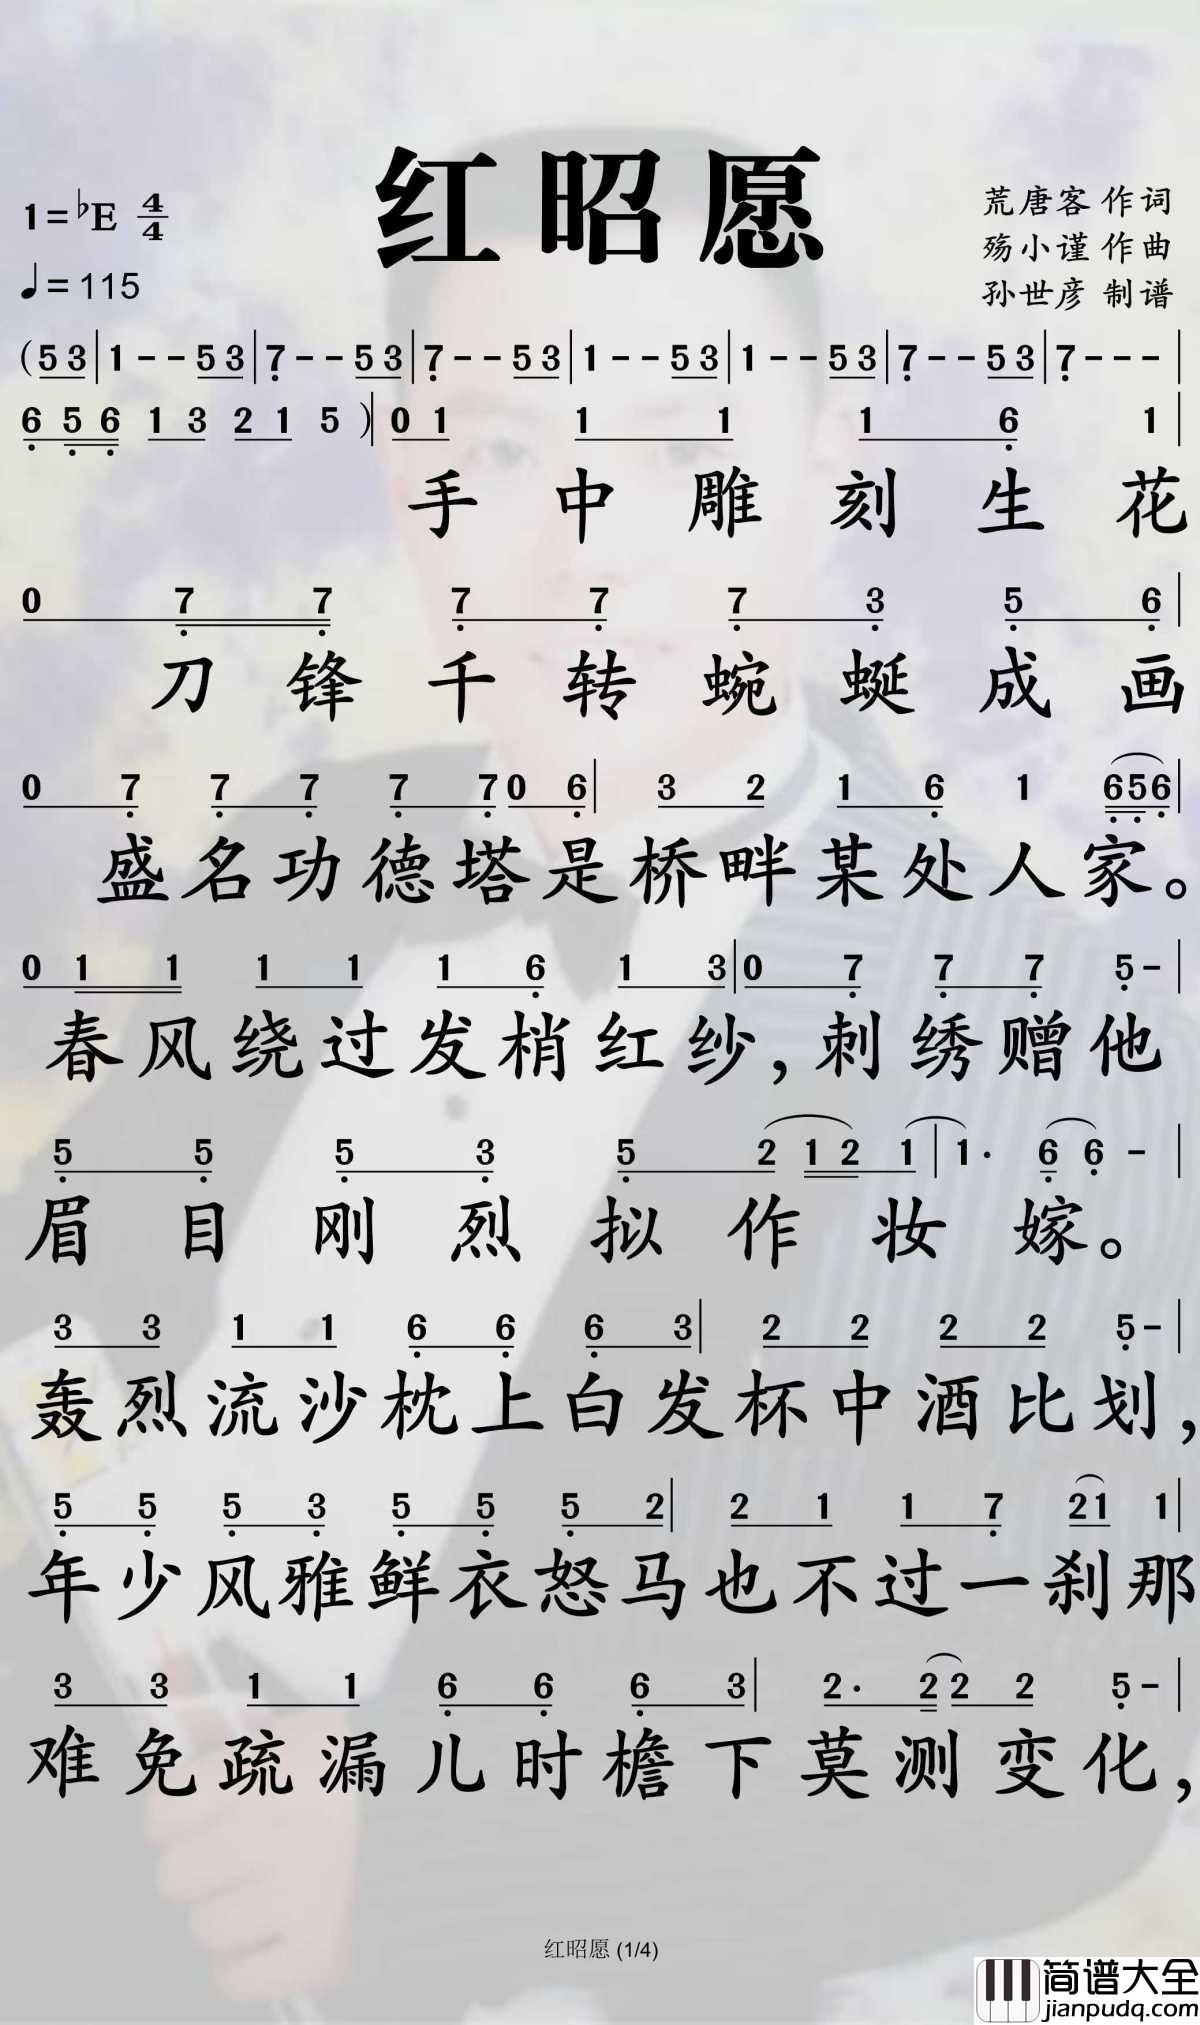 红昭愿
1=♭E 4/4
♩=115
荒唐客 作词
殇小谨 作曲
孙世彦 制谱
(5 3|1 - - 5 3|7 - - 5 3|7 - - 5 3|1 - - 5 3|1 - - 5 3|7 - - 5 3|7 - - -|
6 5 6 1 3 2 1 5 )|0 1 1 1 1 6 1|
手中雕刻生花
0 7 7 7 7 7 3 5 6|
刀锋千转蜿蜒成画
0 7 7 7 7 7 0 6|3 2 1 6 1 6 5 6|
盛名功德塔是桥畔某处人家。
0 1 1 1 1 1 6 1 3|0 7 7 7 5 -|
春风绕过发梢红纱,刺绣赠他
5 5 5 3 5 2 1 2 1|1· 6 6 -|
眉目刚烈拟作妆嫁。
3 3 1 1 6 6 6 3|2 2 2 2 5 -|
轰烈流沙枕上白发杯中酒比划,
5 5 5 3 5 5 5 2|2 1 1 7 2 1 1|
年少风雅鲜衣怒马也不过一刹那
3 3 1 1 6 6 6 3|2· 2 2 2 5 -|
难免疏漏儿时檐下莫测变化,
红昭愿 (1/4)
简谱大全
jianpudq.com